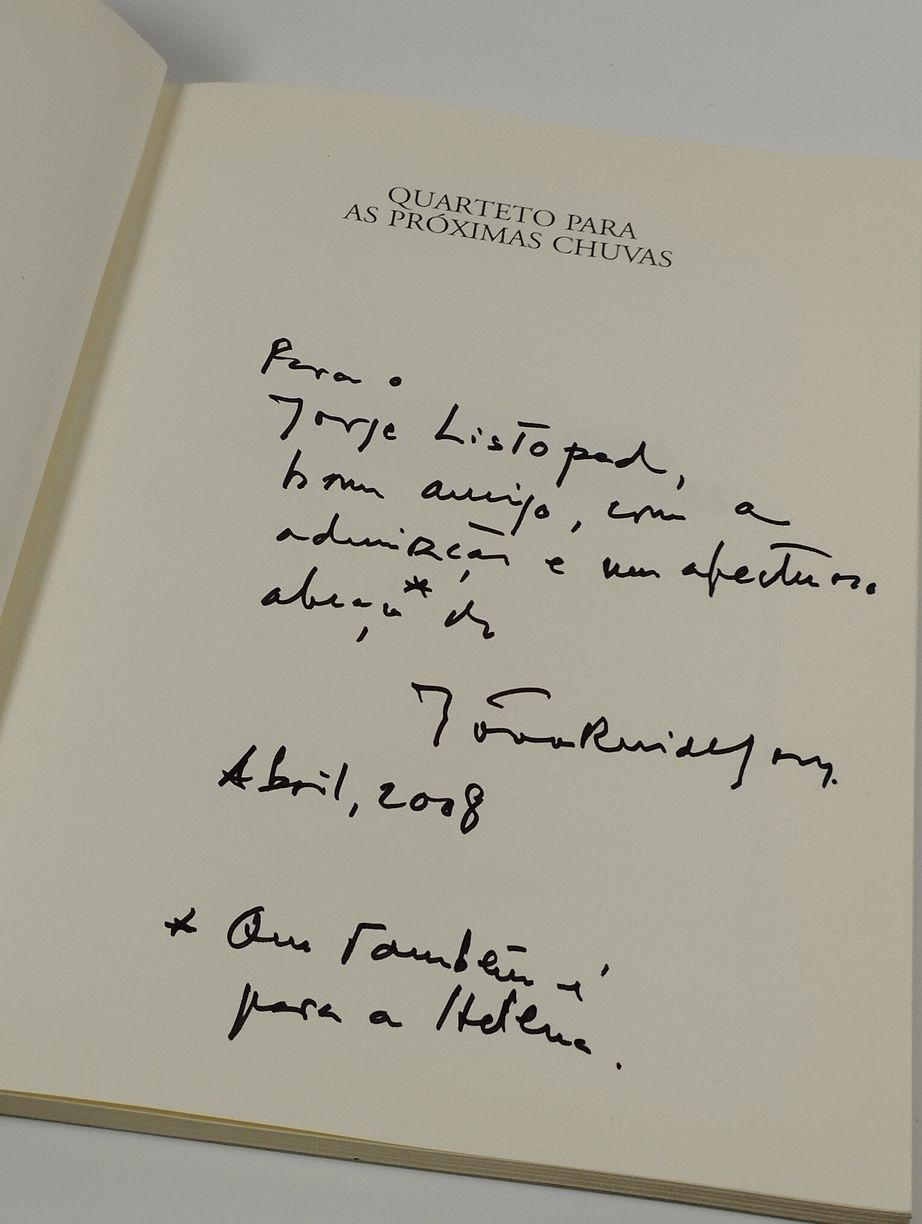 QUARTETO PARA
AS PRÓXIMAS CHUVAS
Para o
Jorge Listopad,
bom amigo, com a
admiração e um afectuoso
abraço* do
João Rui de Sousa.
Abril, 2008
* Que também é
para a Helena.